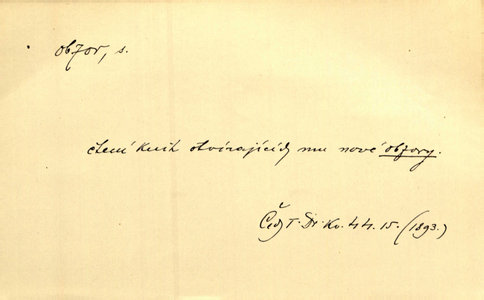 obzor, s.
čtení knih otvírajících mu nové obzory.
Čech T. Dr. Kv. 44. 15. (1893.)